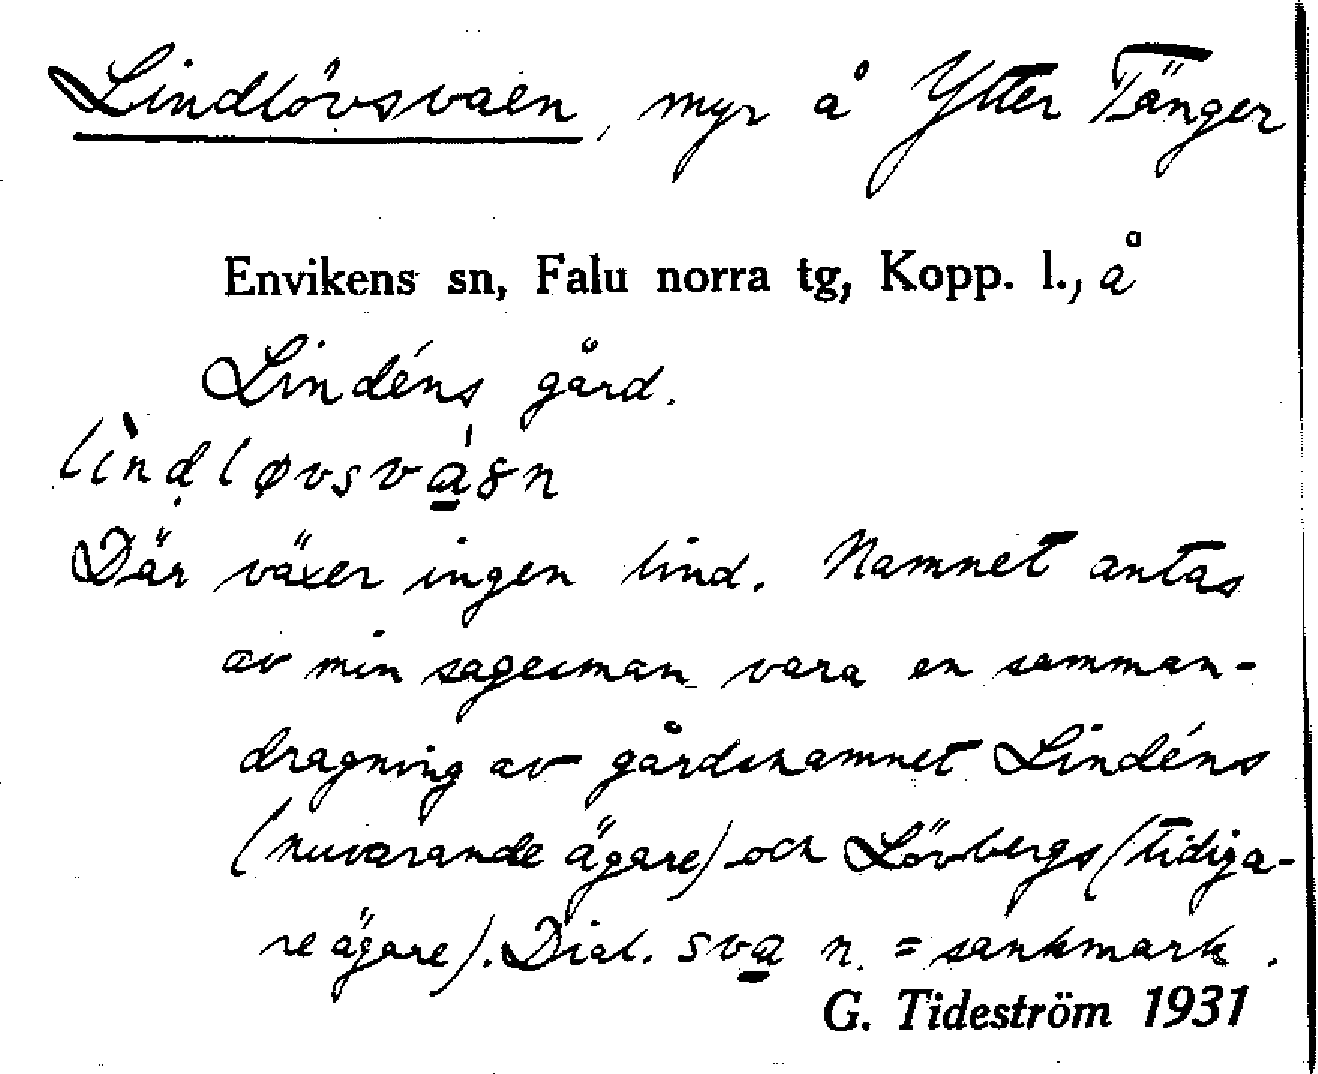 Lindlövsvaen, myr å Ytter Tänger
Envikens sn, Falu norra tg, Kopp. l., å
Lindéns gård.
lìndløvsvá̲ən
Där växer ingen lind. Namnet antas
av min sagesman vara en samman-
dragning av gårdsnamnet Lindéns
(nuvarande ägare) och Lövbergs (tidiga-
re ägare). Dial. sva̲ n. = sankmark.
G. Tideström 1931